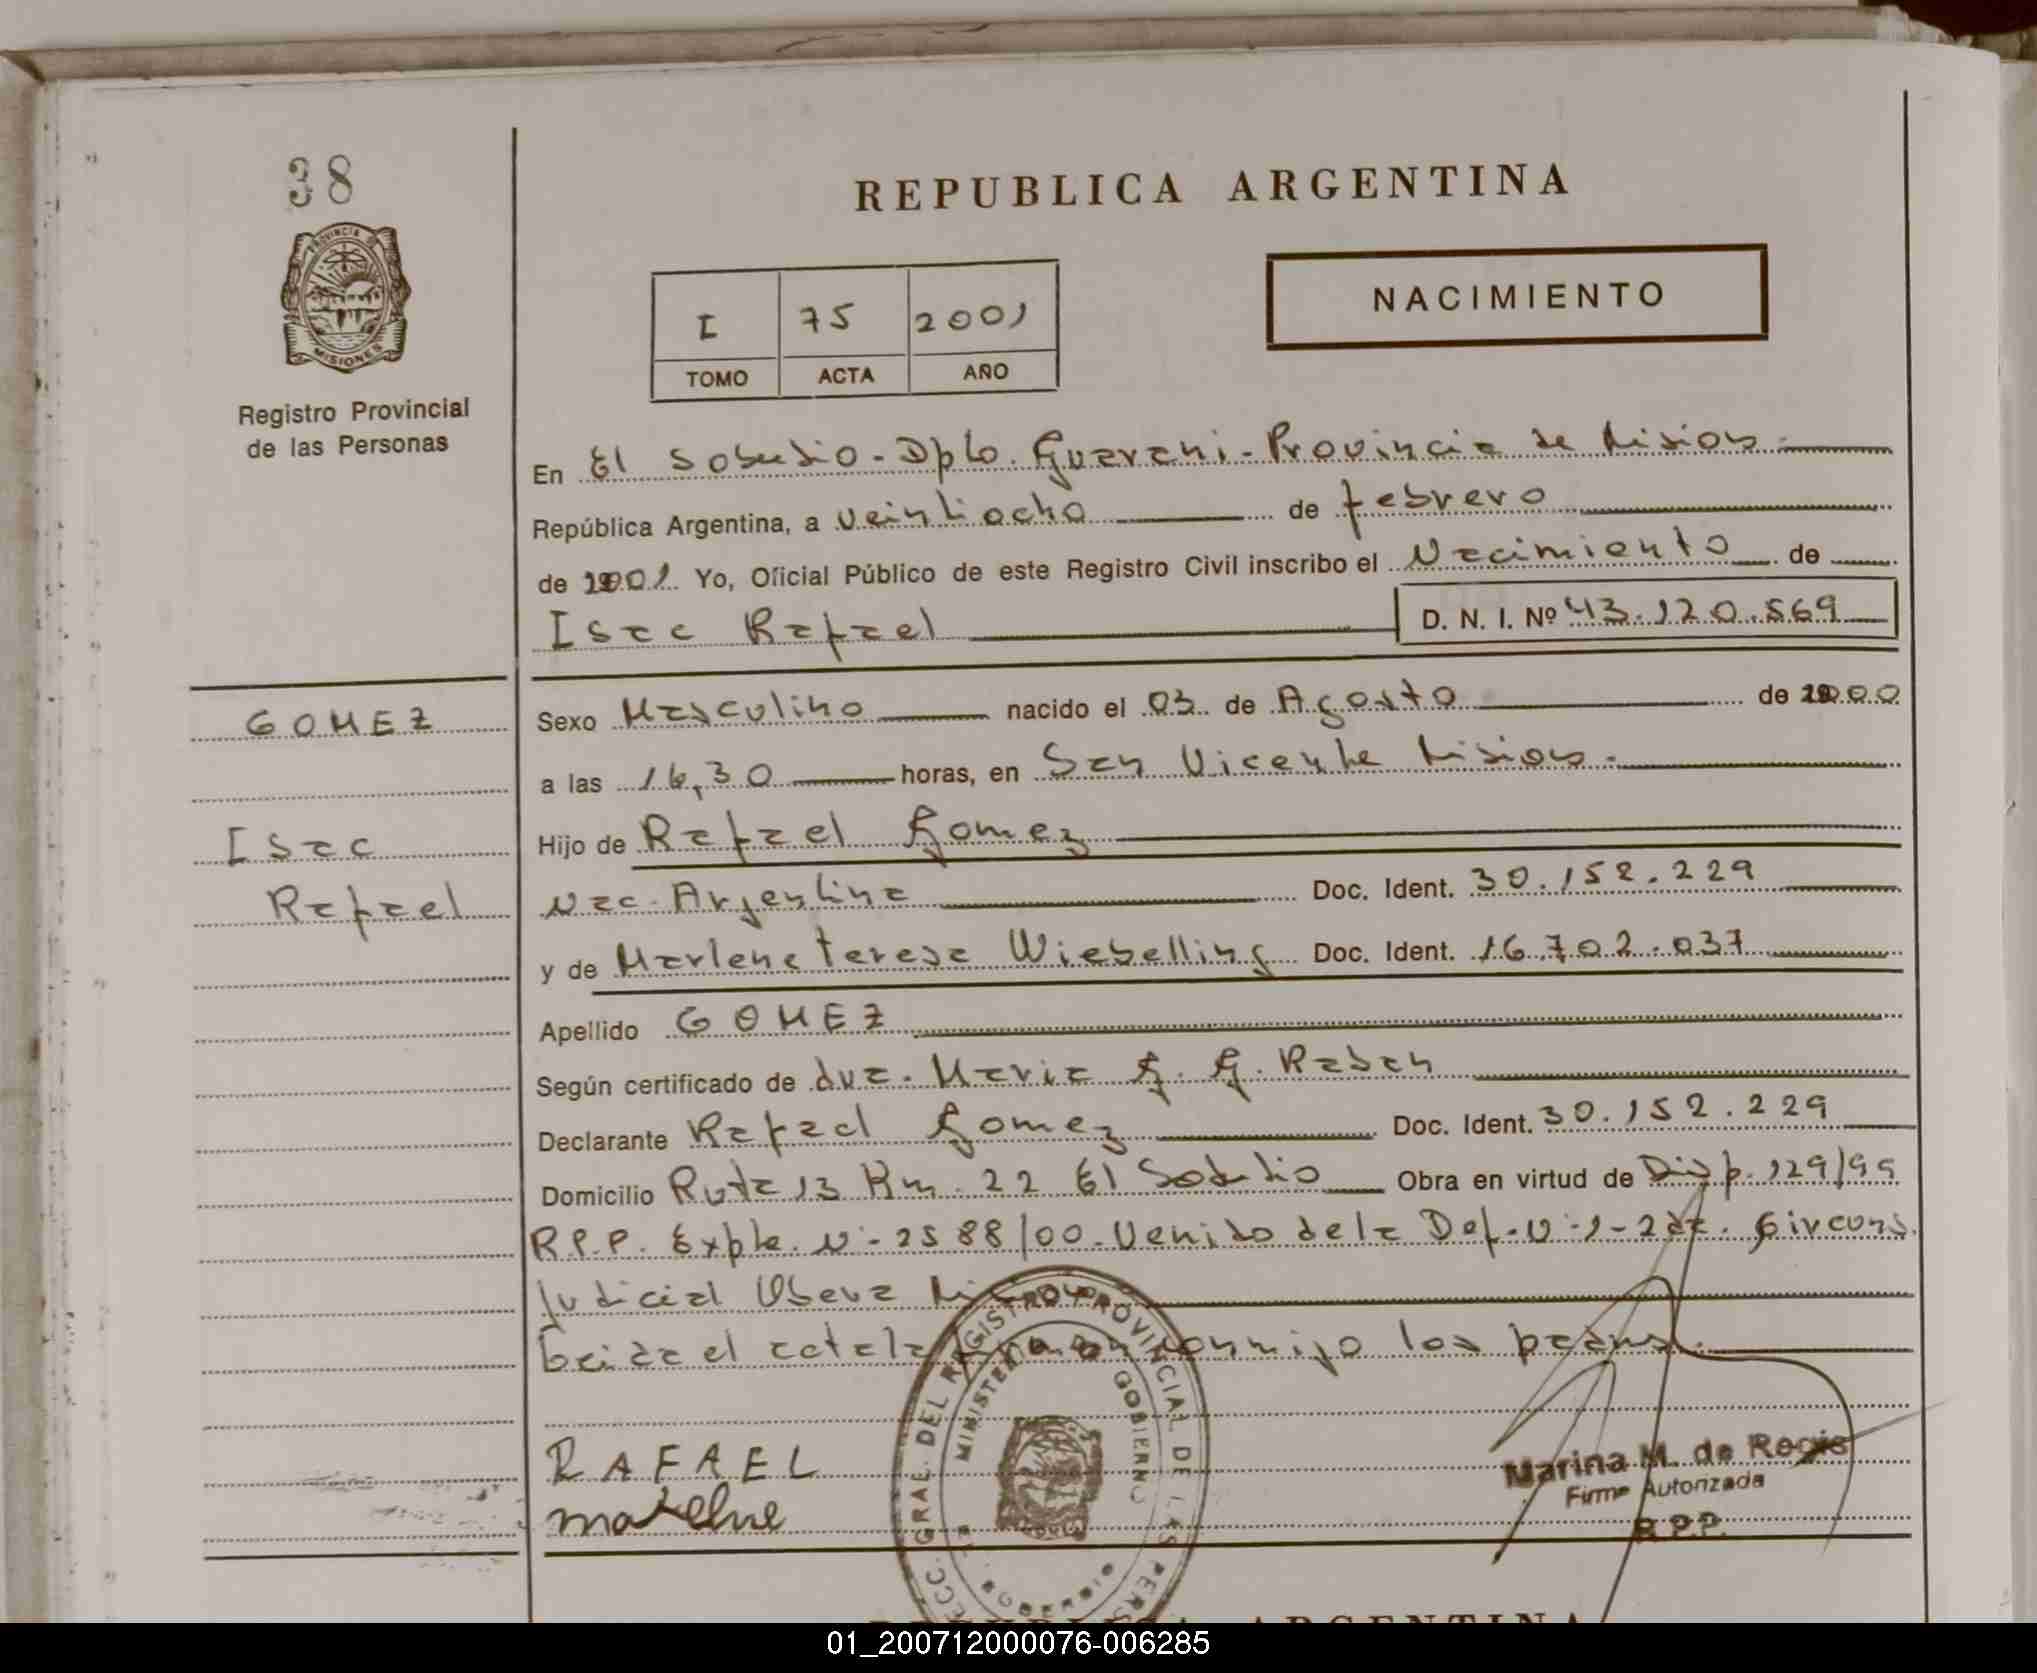 38
REPUBLICA ARGENTINA
PROVINCIA DE
MISIONES
Registro Provincial
de las Personas
I 75 2001
TOMO ACTA AÑO
NACIMIENTO
En El Soberbio - Dpto. Guarani - Provincia de Misiones.
República Argentina, a veintiocho de febrero
de 2001. Yo, Oficial Público de este Registro Civil inscribo el Nacimiento de
Isac Rafael D. N. I. Nº 43.120.569
GOMEZ
Sexo Masculino nacido el 03 de Agosto de 2000
a las 16,30 horas, en San Vicente Misiones.
Isac
Hijo de Rafael Gomez
Rafael
Nac. Argentina Doc. Ident. 30.152.229
y de Marlene teresa Wiebelling Doc. Ident. 16.702.037
Apellido GOMEZ
Según certificado de Maria G. G. Raban
Declarante Rafael Gomez Doc. Ident. 30.152.229
Domicilio Ruta 13 Km. 22 El Soberbio Obra en virtud de Disp. 129/99
R.P.P. Expte. Nº 2588/00. Venido de la Def. Nº 1 - 2da. Circuns.
Judicial Obera
Leida el acta la conmigo los padres.
RAFAEL
Marina M. de Regis
Firma Autorizada
R.P.P.
DIRECC. GRAL. DEL REGISTRO PROVINCIAL DE LAS PERS
MINISTERIO DE GOBIERNO
REPUBLICA ARGENTINA
01_200712000076-006285